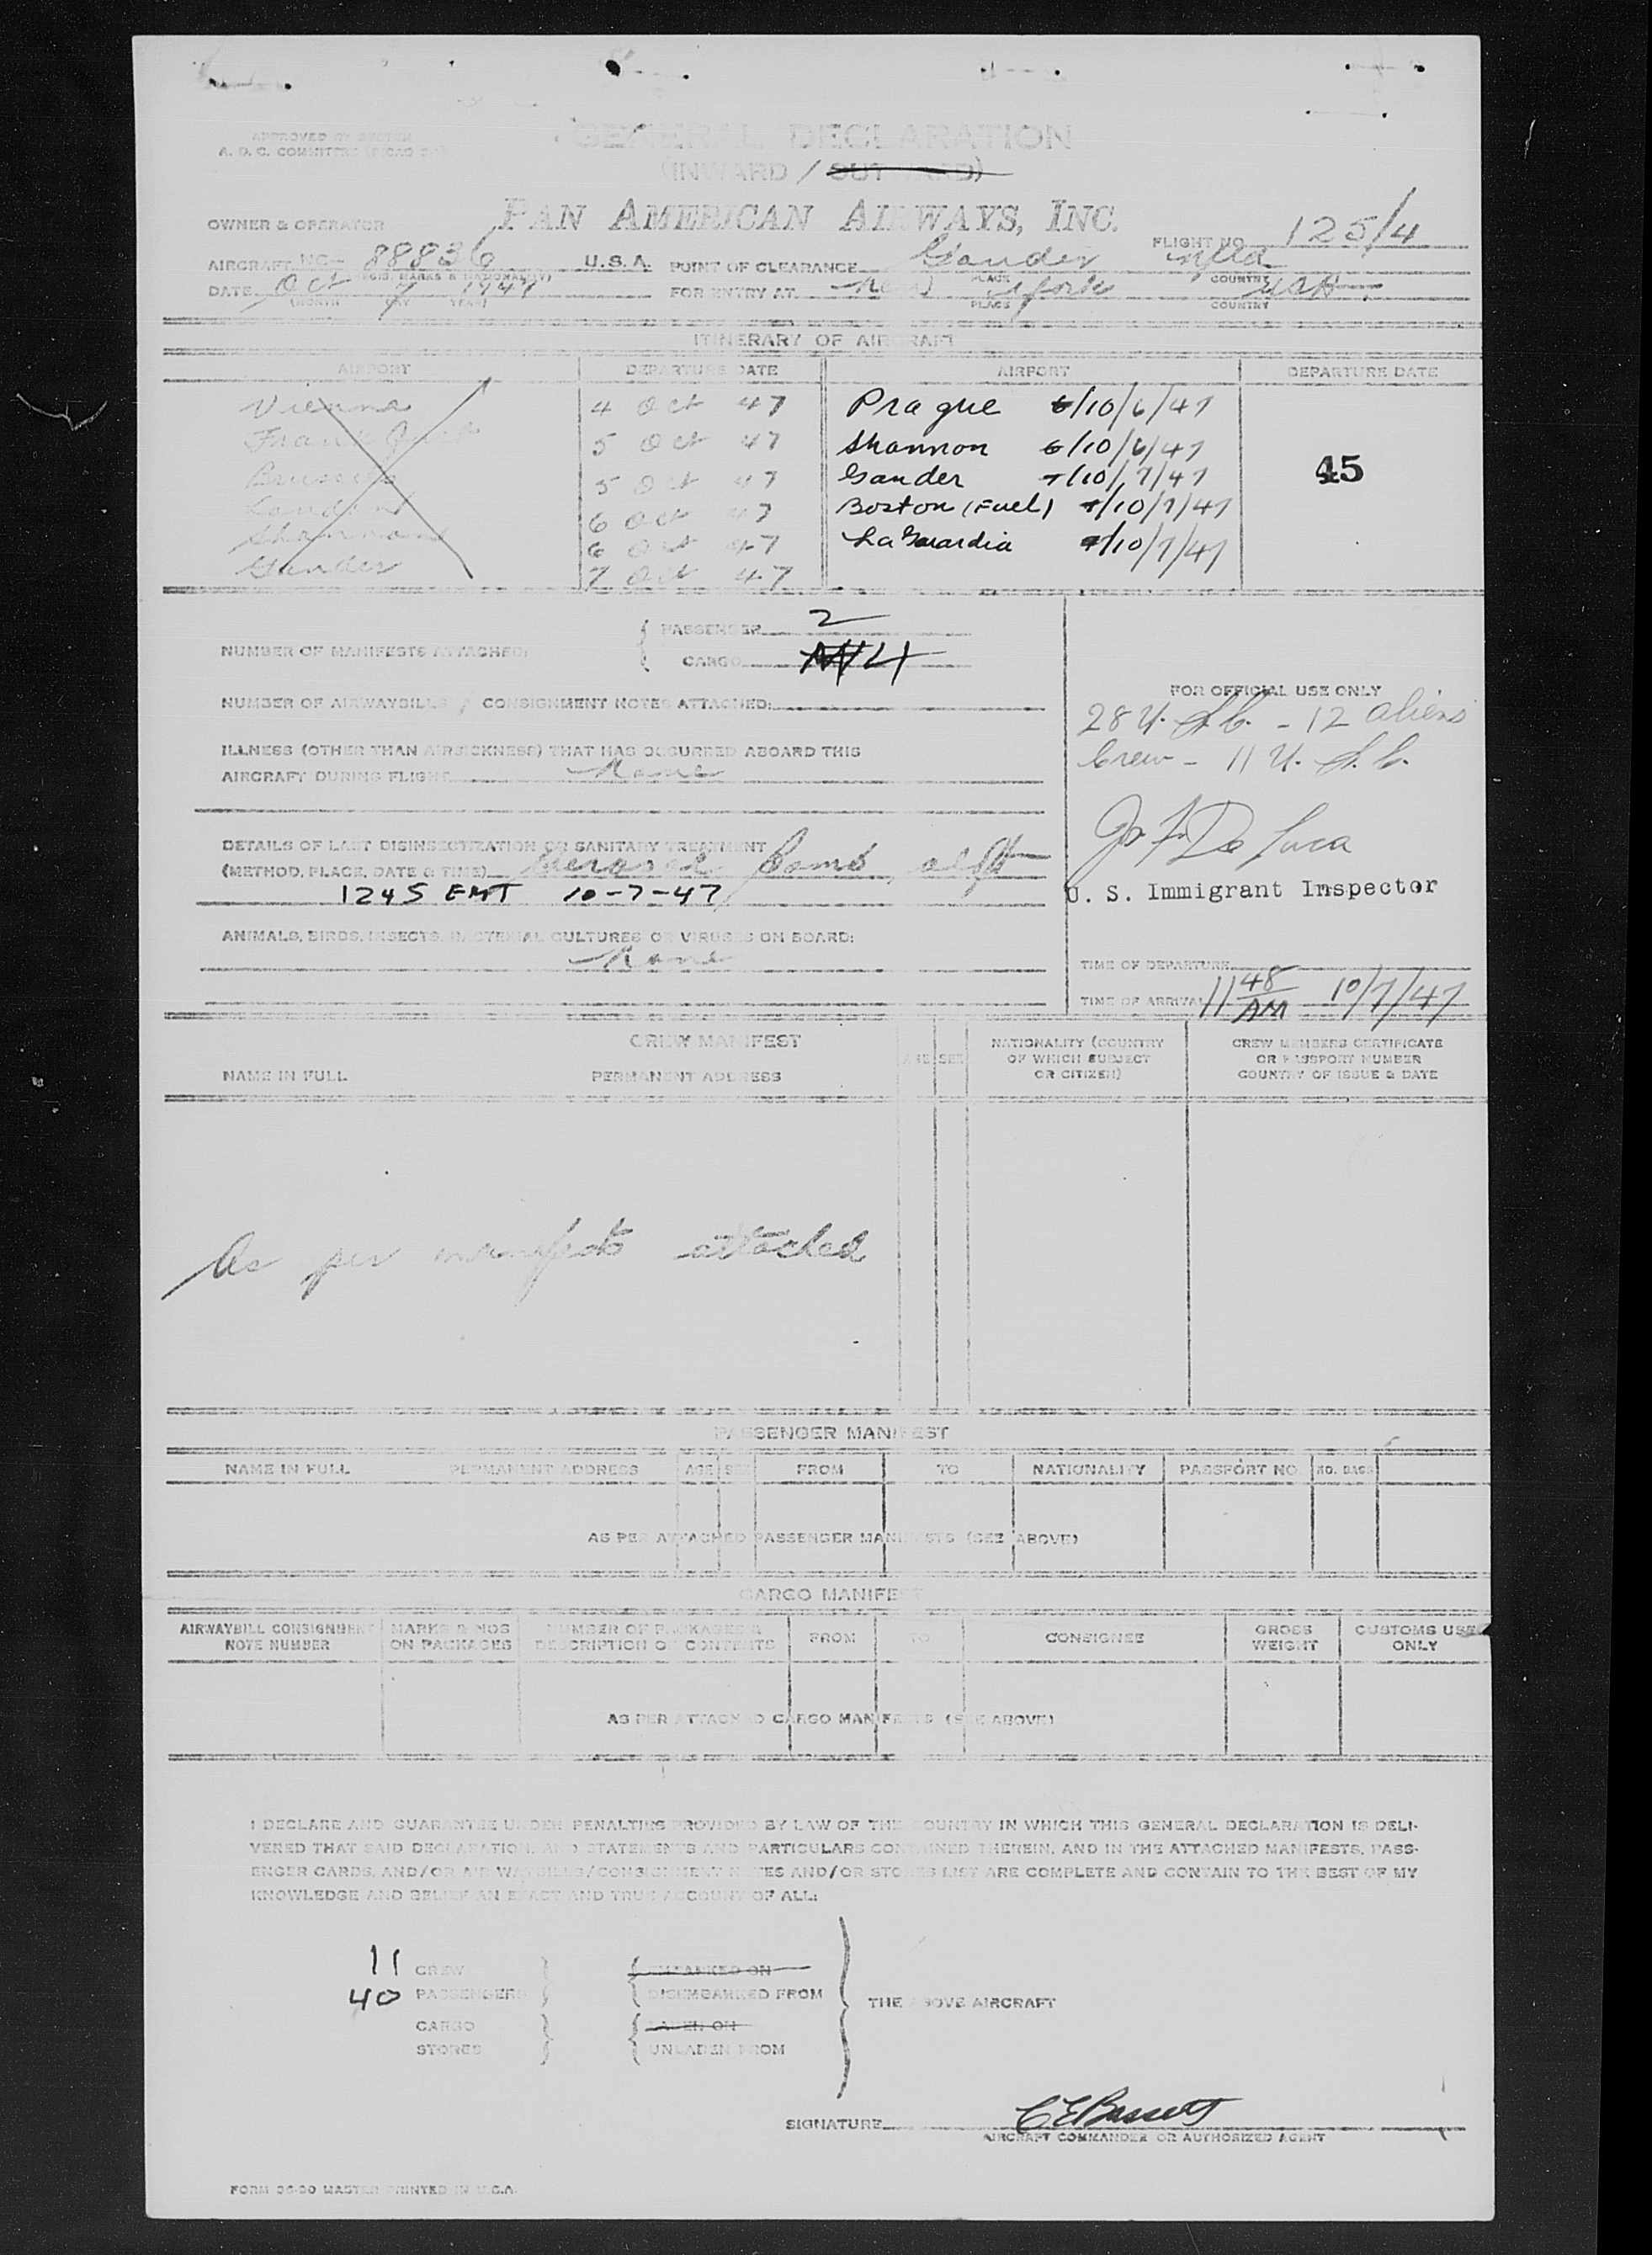 APPROVED BY
A. D. C. COMMITTEE
GENERAL DECLARATION
(INWARD / OUTWARD)
OWNER & OPERATOR PAN AMERICAN AIRWAYS, INC.
FLIGHT NO. 125/4
AIRCRAFT NC- 88836 U.S.A. POINT OF CLEARANCE Gander Nfld
(REG. MARKS & NATIONALITY) PLACE COUNTRY
DATE Oct 7 1947 FOR ENTRY AT New York USA
(MONTH DAY YEAR) PLACE COUNTRY
ITINERARY OF AIRCRAFT
AIRPORT DEPARTURE DATE AIRPORT DEPARTURE DATE
Vienna 4 Oct 47 Prague 6/10/6/47
Frankfurt 5 Oct 47 Shannon 6/10/6/47
Brussels 5 Oct 47 Gander 7/10/7/47
London 6 Oct 47 Boston (Fuel) 7/10/7/47
Shannon 6 Oct 47 LaGuardia 7/10/7/47
Gander 7 Oct 47
45
NUMBER OF MANIFESTS ATTACHED: PASSENGER 2
CARGO 4
NUMBER OF AIRWAYBILLS / CONSIGNMENT NOTES ATTACHED:
ILLNESS (OTHER THAN AIRSICKNESS) THAT HAS OCCURRED ABOARD THIS
AIRCRAFT DURING FLIGHT None
DETAILS OF LAST DISINSECTIZATION OR SANITARY TREATMENT
(METHOD, PLACE, DATE & TIME) Aerosol Bomb, aloft
1245 GMT 10-7-47
ANIMALS, BIRDS, INSECTS, BACTERIAL CULTURES OR VIRUSES ON BOARD:
None
FOR OFFICIAL USE ONLY
28 U.S.C. - 12 aliens
Crew - 11 U.S.C.
Jo. F. De Luca
U. S. Immigrant Inspector
TIME OF DEPARTURE
TIME OF ARRIVAL 11 48 AM 10/7/47
CREW MANIFEST
NAME IN FULL PERMANENT ADDRESS AGE SEX NATIONALITY (COUNTRY OF WHICH SUBJECT OR CITIZEN) CREW MEMBERS CERTIFICATE OR PASSPORT NUMBER COUNTRY OF ISSUE & DATE
As per manifests attached
PASSENGER MANIFEST
NAME IN FULL PERMANENT ADDRESS AGE SEX FROM TO NATIONALITY PASSPORT NO. NO. BAGS
AS PER ATTACHED PASSENGER MANIFESTS (SEE ABOVE)
CARGO MANIFEST
AIRWAYBILL CONSIGNMENT NOTE NUMBER MARKS & NOS ON PACKAGES NUMBER OF PACKAGES & DESCRIPTION OF CONTENTS FROM TO CONSIGNEE GROSS WEIGHT CUSTOMS USE ONLY
AS PER ATTACHED CARGO MANIFESTS (SEE ABOVE)
I DECLARE AND GUARANTEE UNDER PENALTIES PROVIDED BY LAW OF THE COUNTRY IN WHICH THIS GENERAL DECLARATION IS DELI-
VERED THAT SAID DECLARATION, AND STATEMENTS AND PARTICULARS CONTAINED THEREIN, AND IN THE ATTACHED MANIFESTS, PASS-
ENGER CARDS, AND/OR AIR WAYBILLS/CONSIGNMENT NOTES AND/OR STORES LIST ARE COMPLETE AND CONTAIN TO THE BEST OF MY
KNOWLEDGE AND BELIEF AN EXACT AND TRUE ACCOUNT OF ALL:
11 CREW EMBARKED ON
40 PASSENGERS DISEMBARKED FROM
THE ABOVE AIRCRAFT
CARGO LADEN ON
STORES UNLADEN FROM
SIGNATURE C E Bassett
AIRCRAFT COMMANDER OR AUTHORIZED AGENT
FORM 36-30 MASTER PRINTED IN U.S.A.